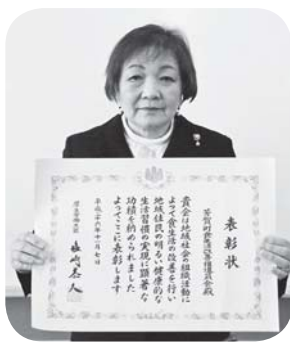 表彰状
芳賀町食生活改善推進員会殿
貴会は地域社会の組織活動に
よって食生活の改善を行い
地域住民の明るい健康的な
生活習慣の実現に顕著な
功績を納められました
よってここに表彰します
平成二十六年十一月七日
厚生労働大臣
塩崎恭久